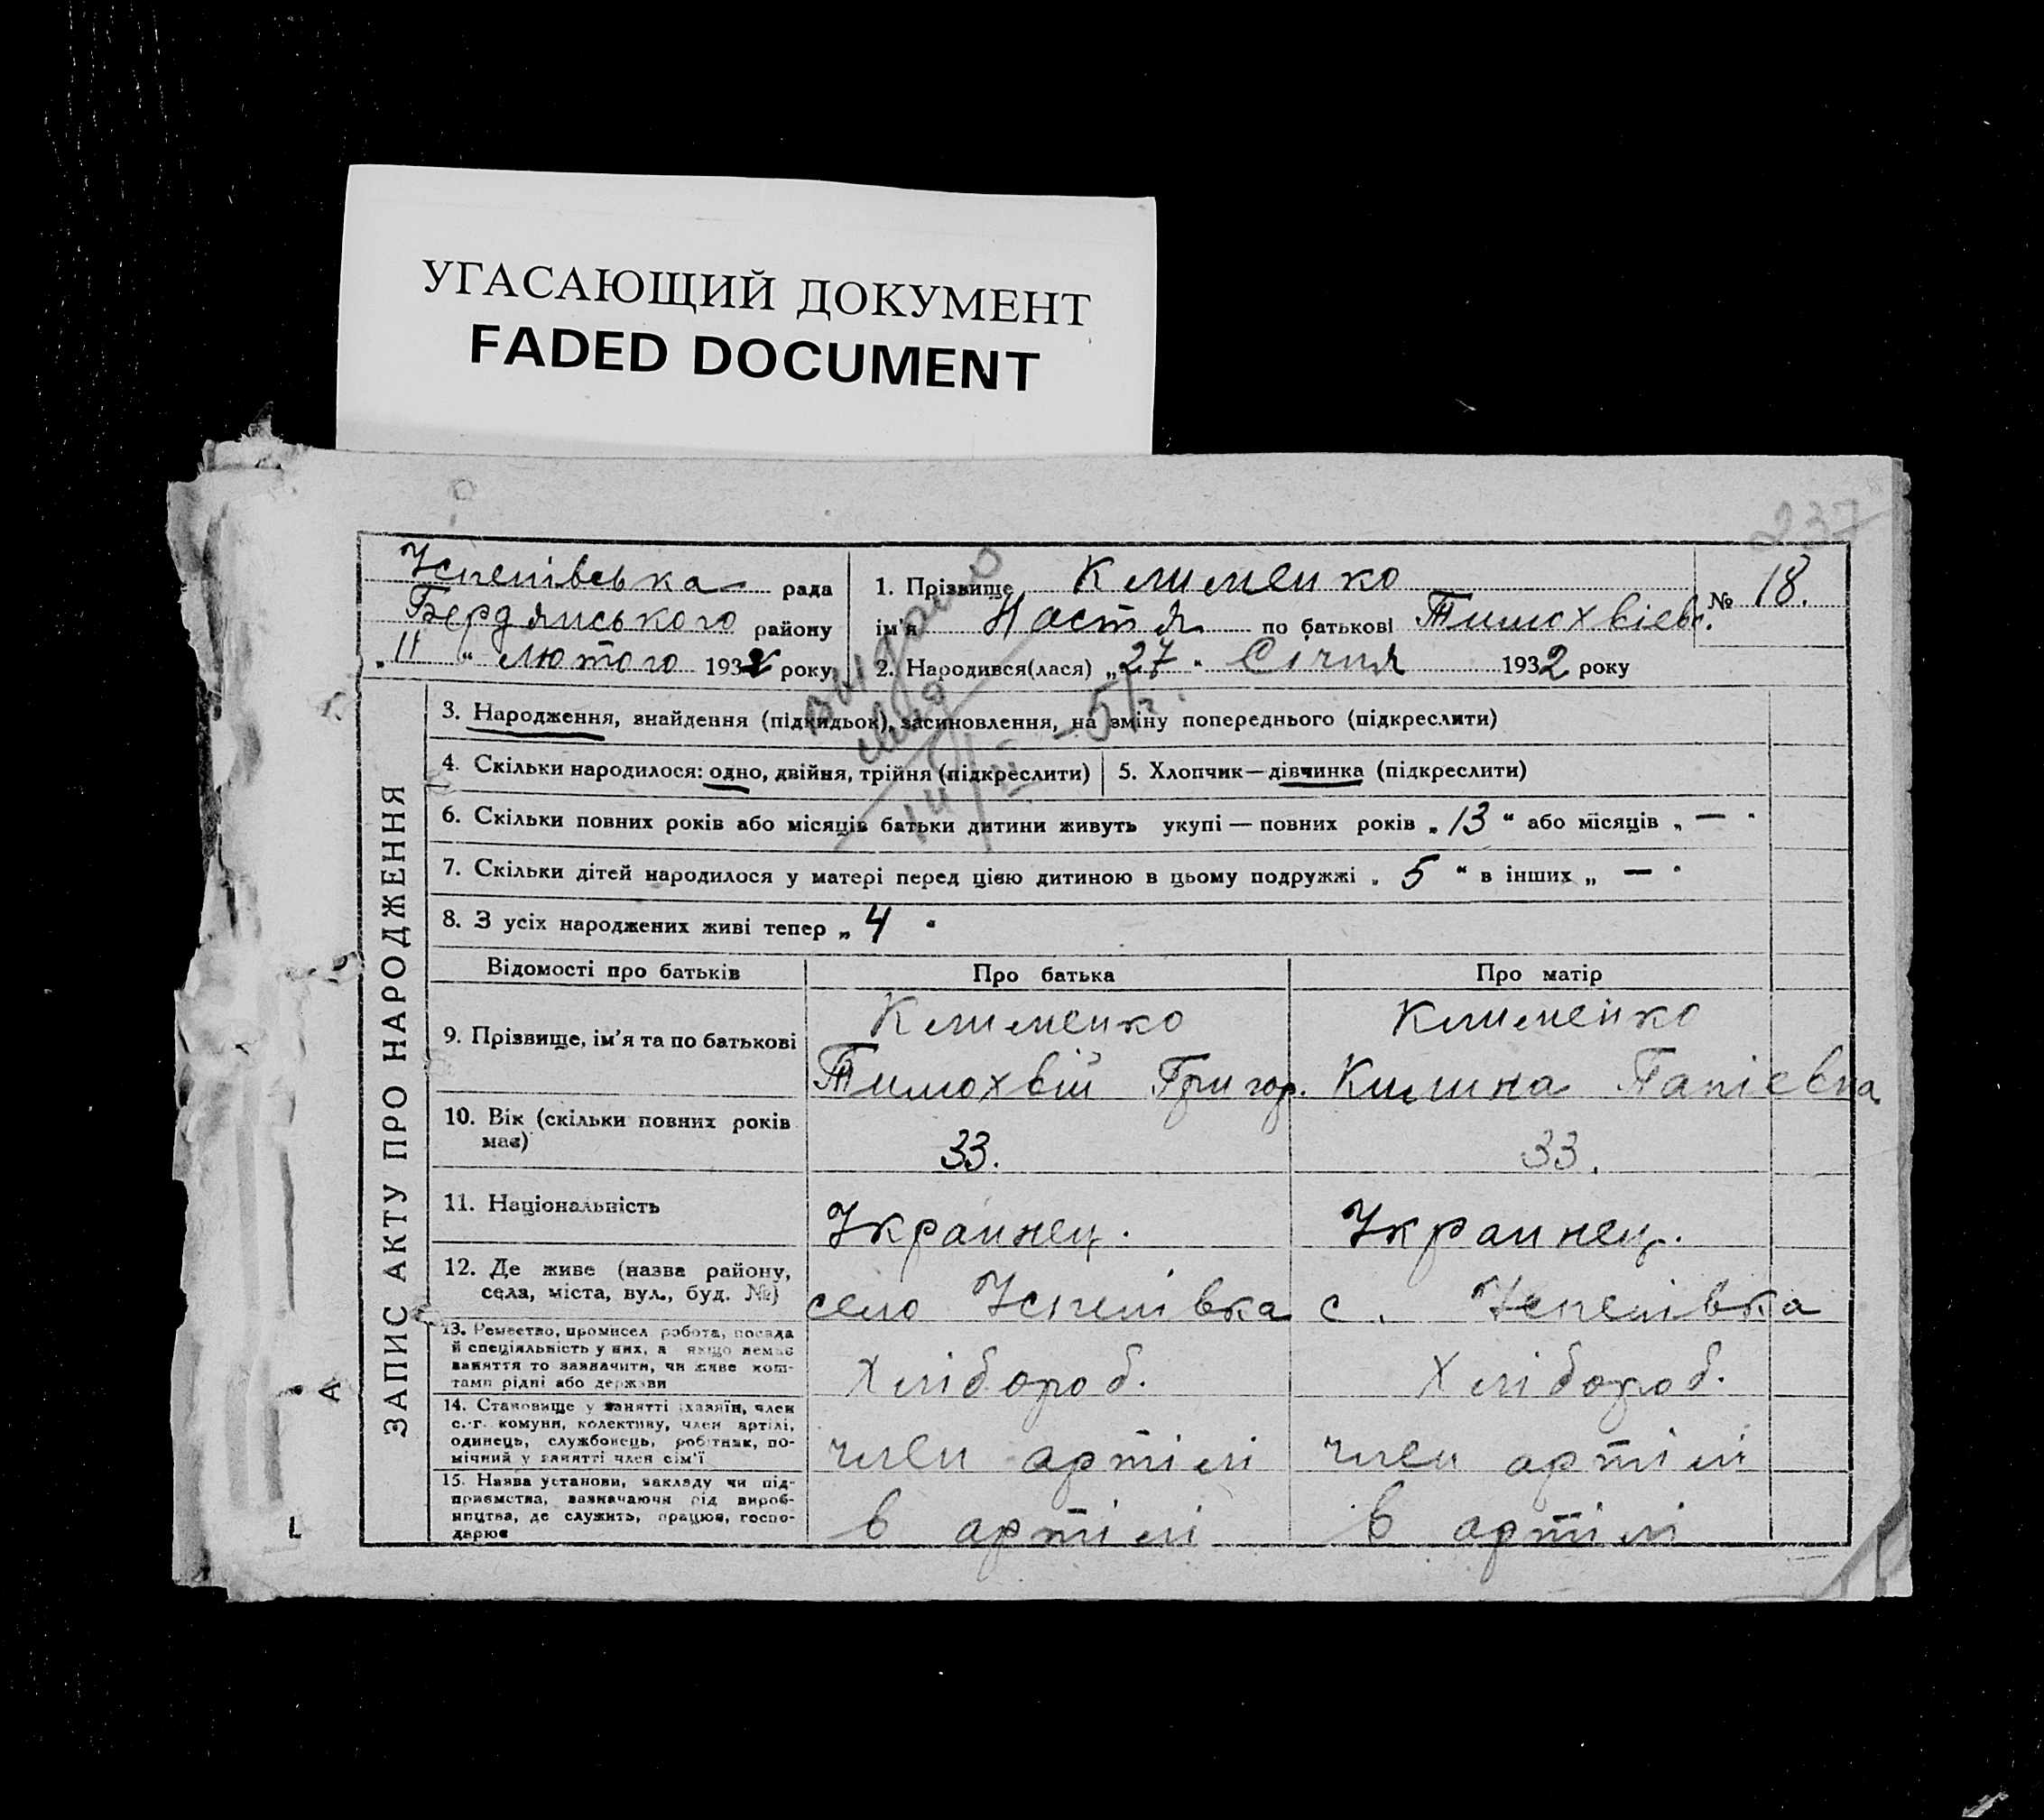 УГАСАЮЩИЙ ДОКУМЕНТ
FADED DOCUMENT
237
Успенівська рада
Бердянського району
„11“ лютого 1932 року
1. Прізвище Клименко
ім'я Настя по батькові Тимохвіевн.
№ 18.
2. Народився(лася) „27“ Січня 1932 року
видано
5/г.
ЗАПИС АКТУ ПРО НАРОДЖЕННЯ
3. Народження, знайдення (підкидьок), засиновлення, на зміну попереднього (підкреслити)
4. Скільки народилося: одно, двійня, трійня (підкреслити)
5. Хлопчик—дівчинка (підкреслити)
6. Скільки повних років або місяців батьки дитини живуть укупі — повних років „13“ або місяців „—“
7. Скільки дітей народилося у матері перед цією дитиною в цьому подружжі „5“ в інших „—“
8. З усіх народжених живі тепер „4“
Відомості про батьків
Про батька
Про матір
9. Прізвище, ім'я та по батькові
Клименко
Тимохвій Григор.
Клименко
Килина Папіевна
10. Вік (скільки повних років
має)
33.
33.
11. Національність
Украинец.
Украинец.
12. Де живе (назва району,
села, міста, вул., буд. №)
село Успенівка
с. Успенівка
13. Ремество, промисел робота, посада
й спеціяльність у них, а якщо немає
заняття то зазначити, чи живе кош-
тами рідні або держави
Хлібороб.
Хлібороб.
14. Становище у занятті (хазяїн, член
с.-г. комуни, колективу, член артілі,
одинець, службовець, робітник, по-
мічний у занятті член сім'ї
член артілі
член артілі
15. Назва установи, закладу чи під-
приємства, зазначаючи рід вироб-
ництва, де служить, працює, госпо-
дарює
в артілі
в артілі